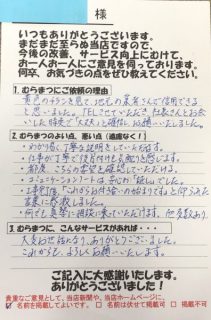 様
いつもありがとうございます。
まだまだ至らぬ当店ですので、
今後の改善、サービス向上にむけて、
お一人お一人にご意見を伺っております。
何卒、お気づきの点をぜひ教えてください。
1. むらまつにご依頼の理由
黄色のチラシを見て、地元の業者さんで信用できる
と思いました。TELさせていただき社長さんとお会
いした時点で「大丈夫」と確信しお願いいたしました。
2. むらまつのよい、悪い点（遠慮なく！）
・わかり易く丁寧な説明をしていただける。
・仕事が丁寧で後片付けも
・こちらの要望を確認していただける。
・コミュニケーションノートは
・工事
言葉に感激しました。
・何でも気楽に相談に乗っていただける。
3. むらまつに、こんなサービスがあれば・・・
大変お世話になり、ありがとうございました。
これからも、よろしくお願いします。
ご記入に大感謝いたします。
ありがとうございました！
貴重なご意見として、当店新聞や、当店ホームページに、
名前を掲載してよいです。 名前を伏せて掲載可 掲載不可